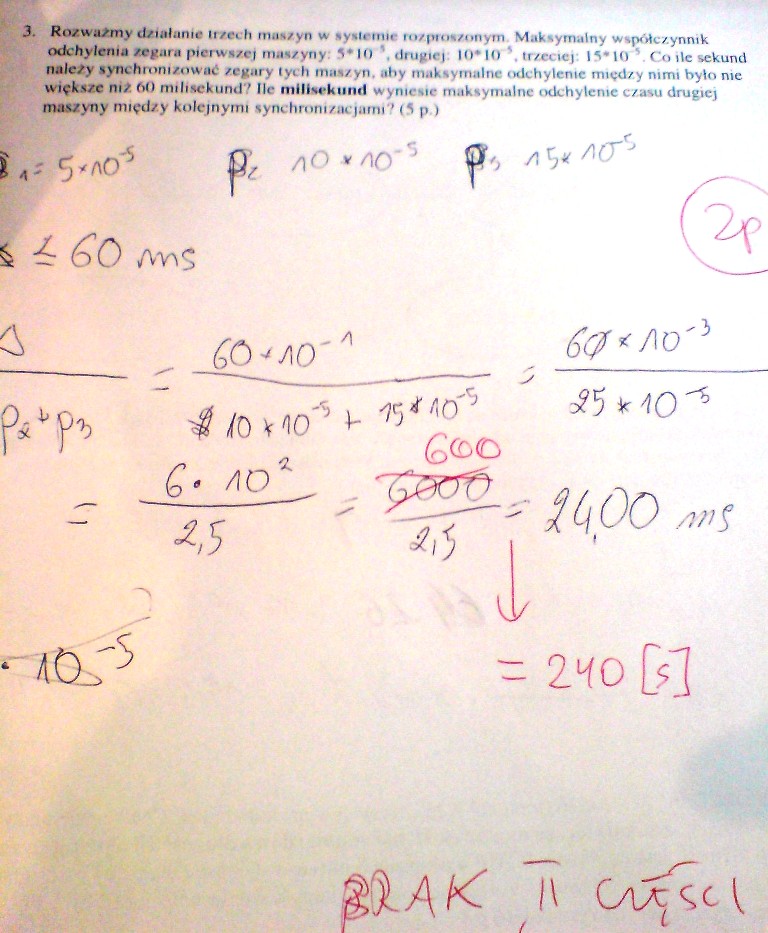 3. Rozważmy działanie trzech maszyn w systemie rozproszonym. Maksymalny współczynnik
odchylenia zegara pierwszej maszyny: 5*10⁻⁵, drugiej: 10*10⁻⁵, trzeciej: 15*10⁻⁵. Co ile sekund
należy synchronizować zegary tych maszyn, aby maksymalne odchylenie między nimi było nie
większe niż 60 milisekund? Ile milisekund wyniesie maksymalne odchylenie czasu drugiej
maszyny między kolejnymi synchronizacjami? (5 p.)
1 = 5*10⁻⁵ p₂ 10 * 10⁻⁵ p₃ 15* 10⁻⁵
2p
≤ 60 ms
Δ / p₂+p₃ = 60*10⁻¹ / 10*10⁻⁵ + 15*10⁻⁵ = 60*10⁻³ / 25*10⁻⁵
600
= 6·10² / 2,5 = 6000 / 2,5 = 24,00 ms
= 240 [s]
· 10⁻⁵
BRAK II CZĘŚCI